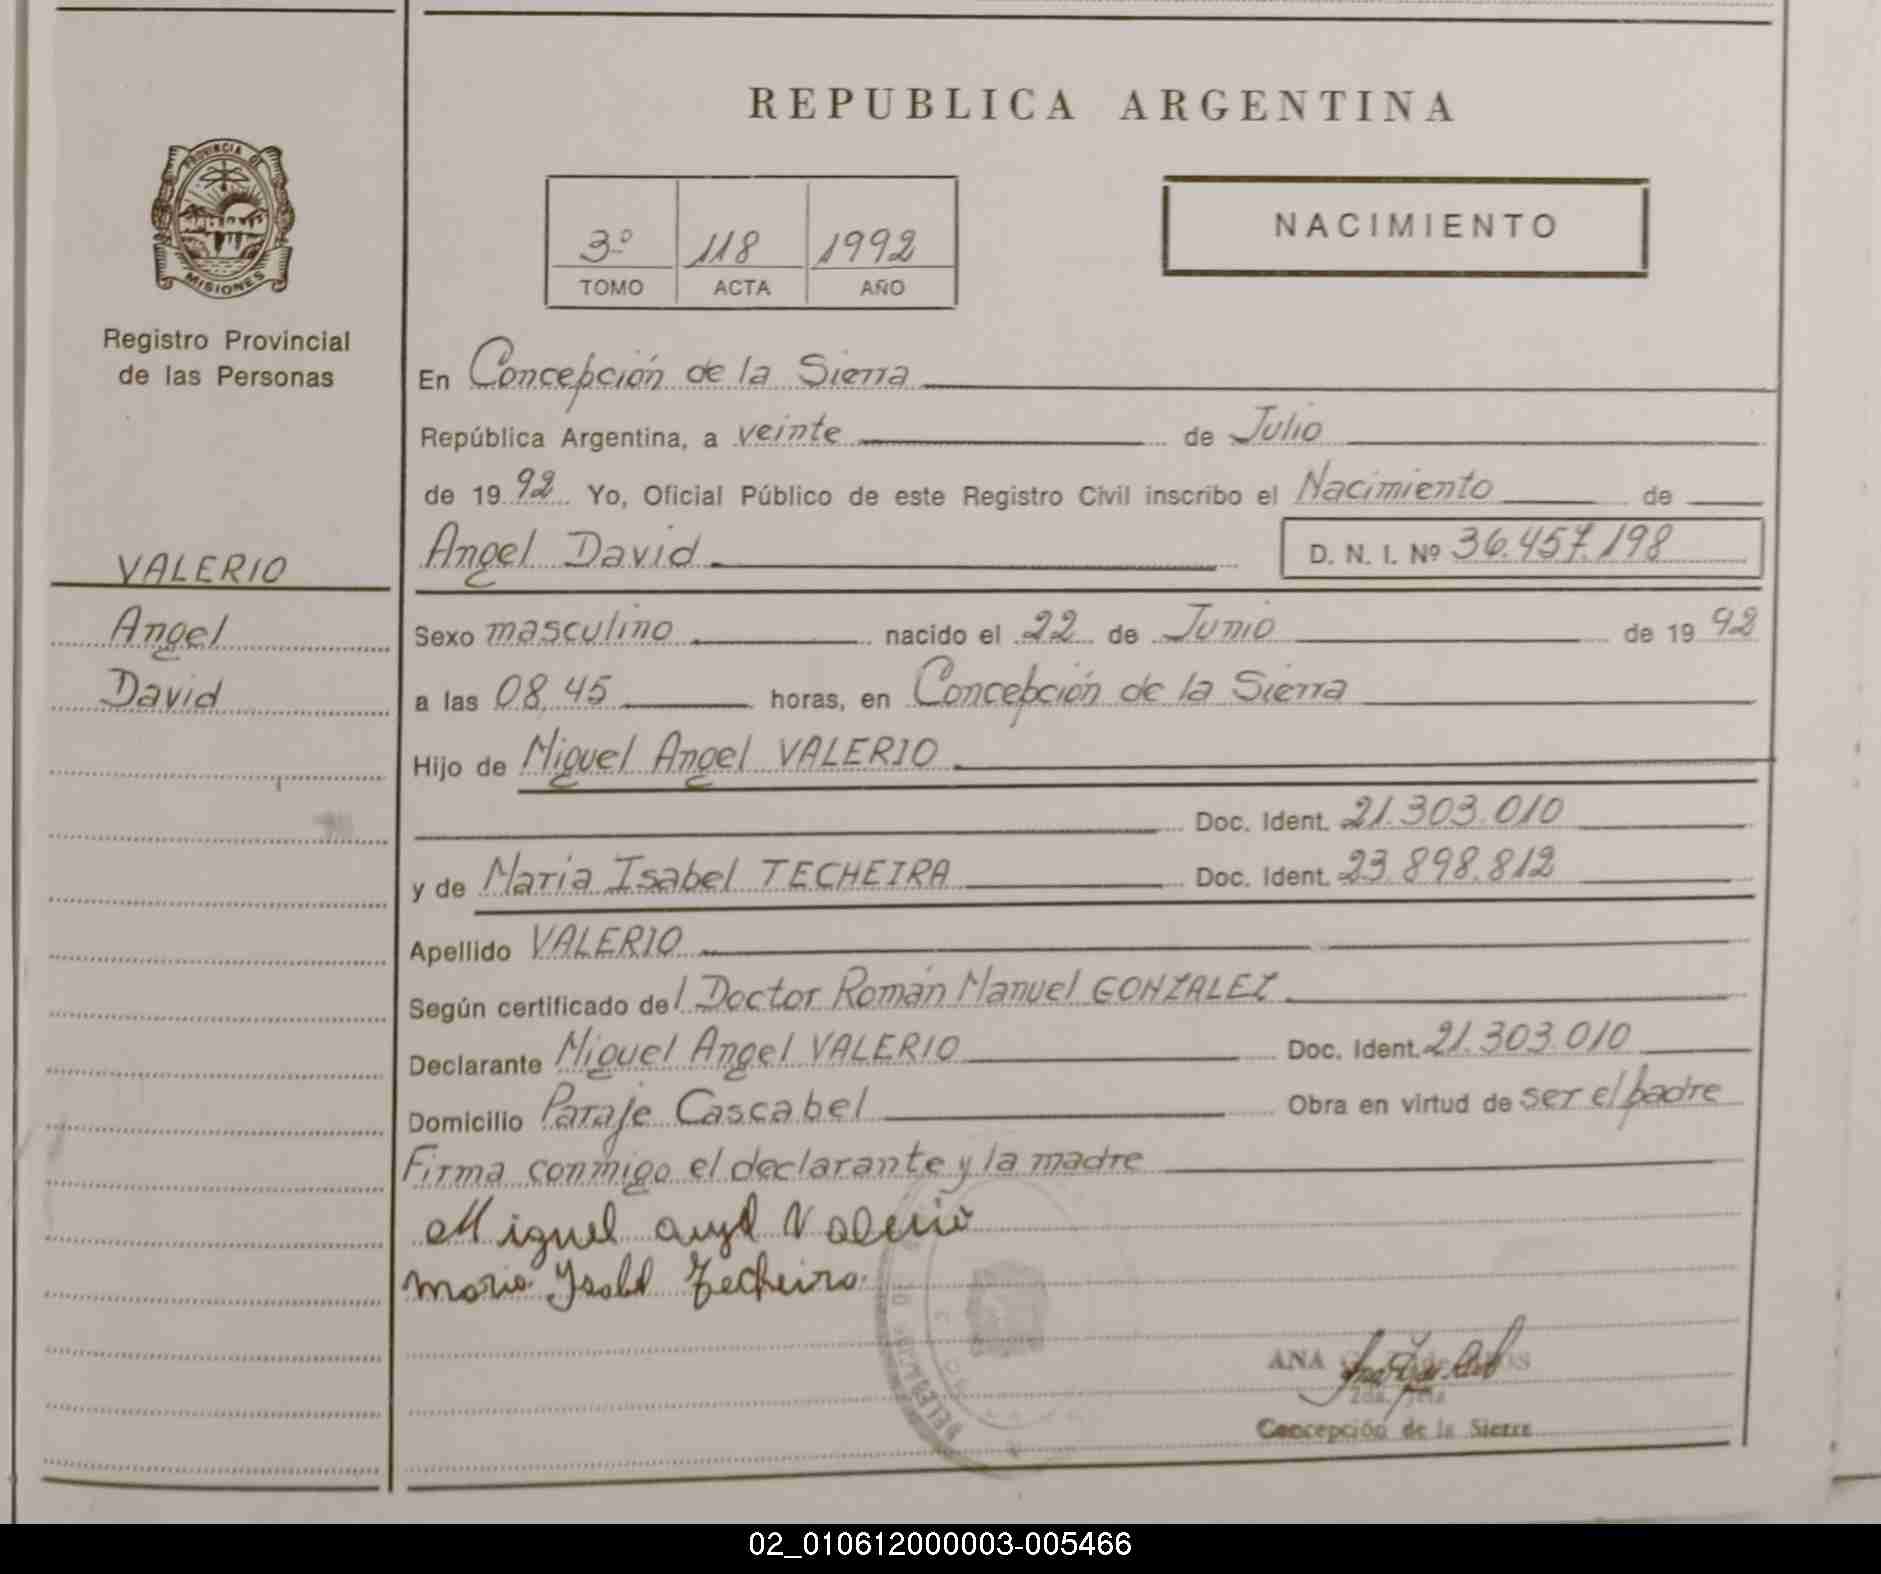 REPUBLICA ARGENTINA
PROVINCIA DE
MISIONES
Registro Provincial
de las Personas
3º 118 1992
TOMO ACTA AÑO
NACIMIENTO
En Concepción de la Sierra
República Argentina, a veinte de Julio
de 1992 Yo, Oficial Público de este Registro Civil inscribo el Nacimiento de
VALERIO
Angel David D. N. I. Nº 36.457.198
Angel
Sexo masculino nacido el 22 de Junio de 1992
David
a las 08,45 horas, en Concepción de la Sierra
Hijo de Miguel Angel VALERIO
Doc. Ident. 21.303.010
y de Maria Isabel TECHEIRA Doc. Ident. 23.898.812
Apellido VALERIO
Según certificado del Doctor Román Manuel GONZALEZ
Declarante Miguel Angel VALERIO Doc. Ident. 21.303.010
Domicilio Paraje Cascabel Obra en virtud de ser el padre
Firma conmigo el declarante y la madre
Miguel angel Valerio
Maria Ysabel Techeira
ANA
Concepción de la Sierra
02_010612000003-005466